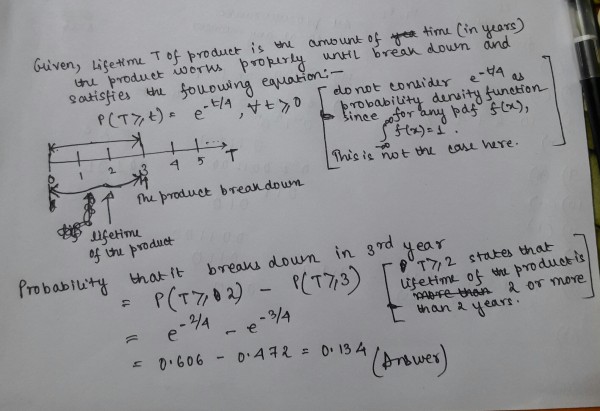 Given, Lifetime T of product is the amount of time (in years)
the product works properly until break down and
satisfies the following equation:-
P(T⩾t) = e^{-t/4}, ∀ t ⩾ 0
[do not consider e^{-t/4} as
probability density function
since for any pdf f(x),
∫_{-∞}^{∞} f(x) = 1.
This is not the case here.]
0 1 2 3 4 5 ... T
The product break down
lifetime
of the product
Probability that it breaks down in 3rd year
= P(T⩾2) - P(T⩾3)
= e^{-2/4} - e^{-3/4}
= 0.606 - 0.472 = 0.134 (Answer)
[T⩾2 states that
lifetime of the product is
more than 2 or more
than 2 years.]